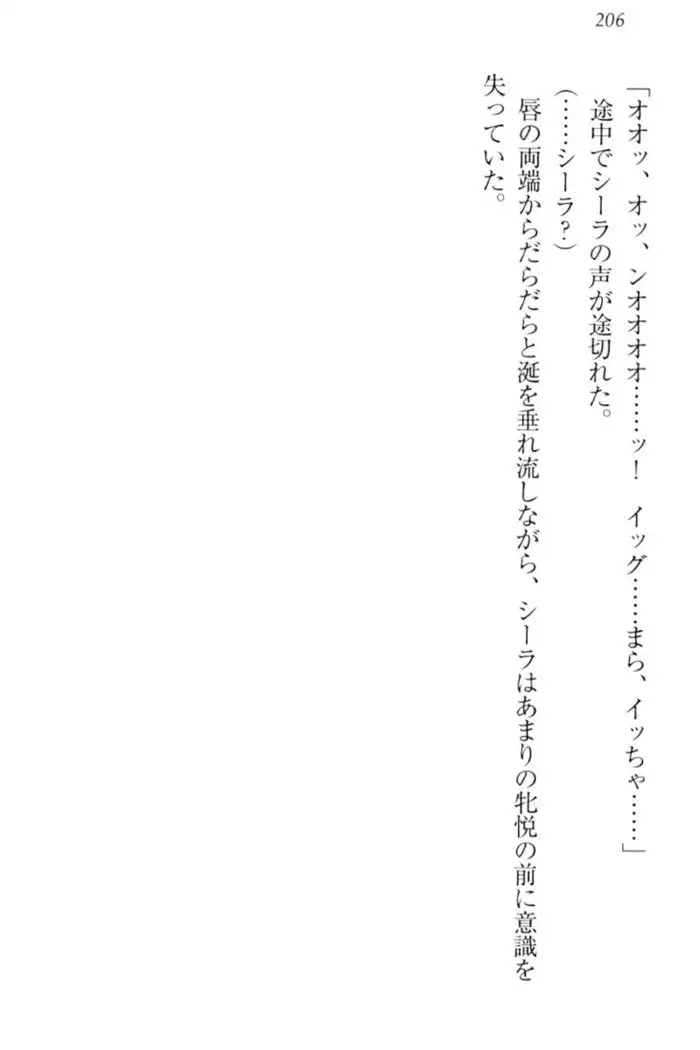 206
「オオッ、オッ、ンオオオオ……ッ！　イッグ……まら、イッちゃ……」
　途中でシーラの声が途切れた。
（……シーラ？）
　唇の両端からだらだらと涎を垂れ流しながら、シーラはあまりの牝悦の前に意識を
失っていた。